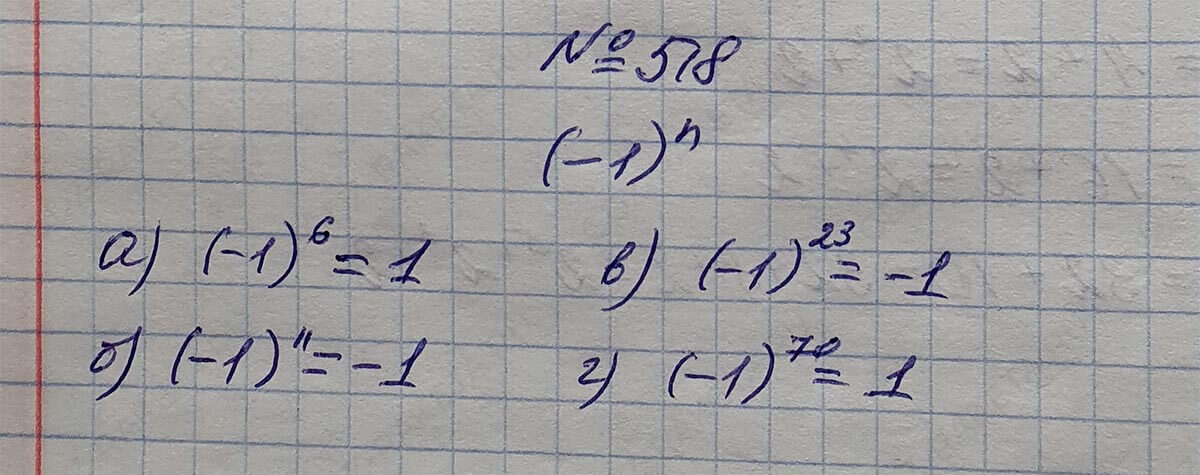 № 578
(-1)ⁿ
а) (-1)⁶ = 1
в) (-1)²³ = -1
б) (-1)¹¹ = -1
г) (-1)⁷⁰ = 1